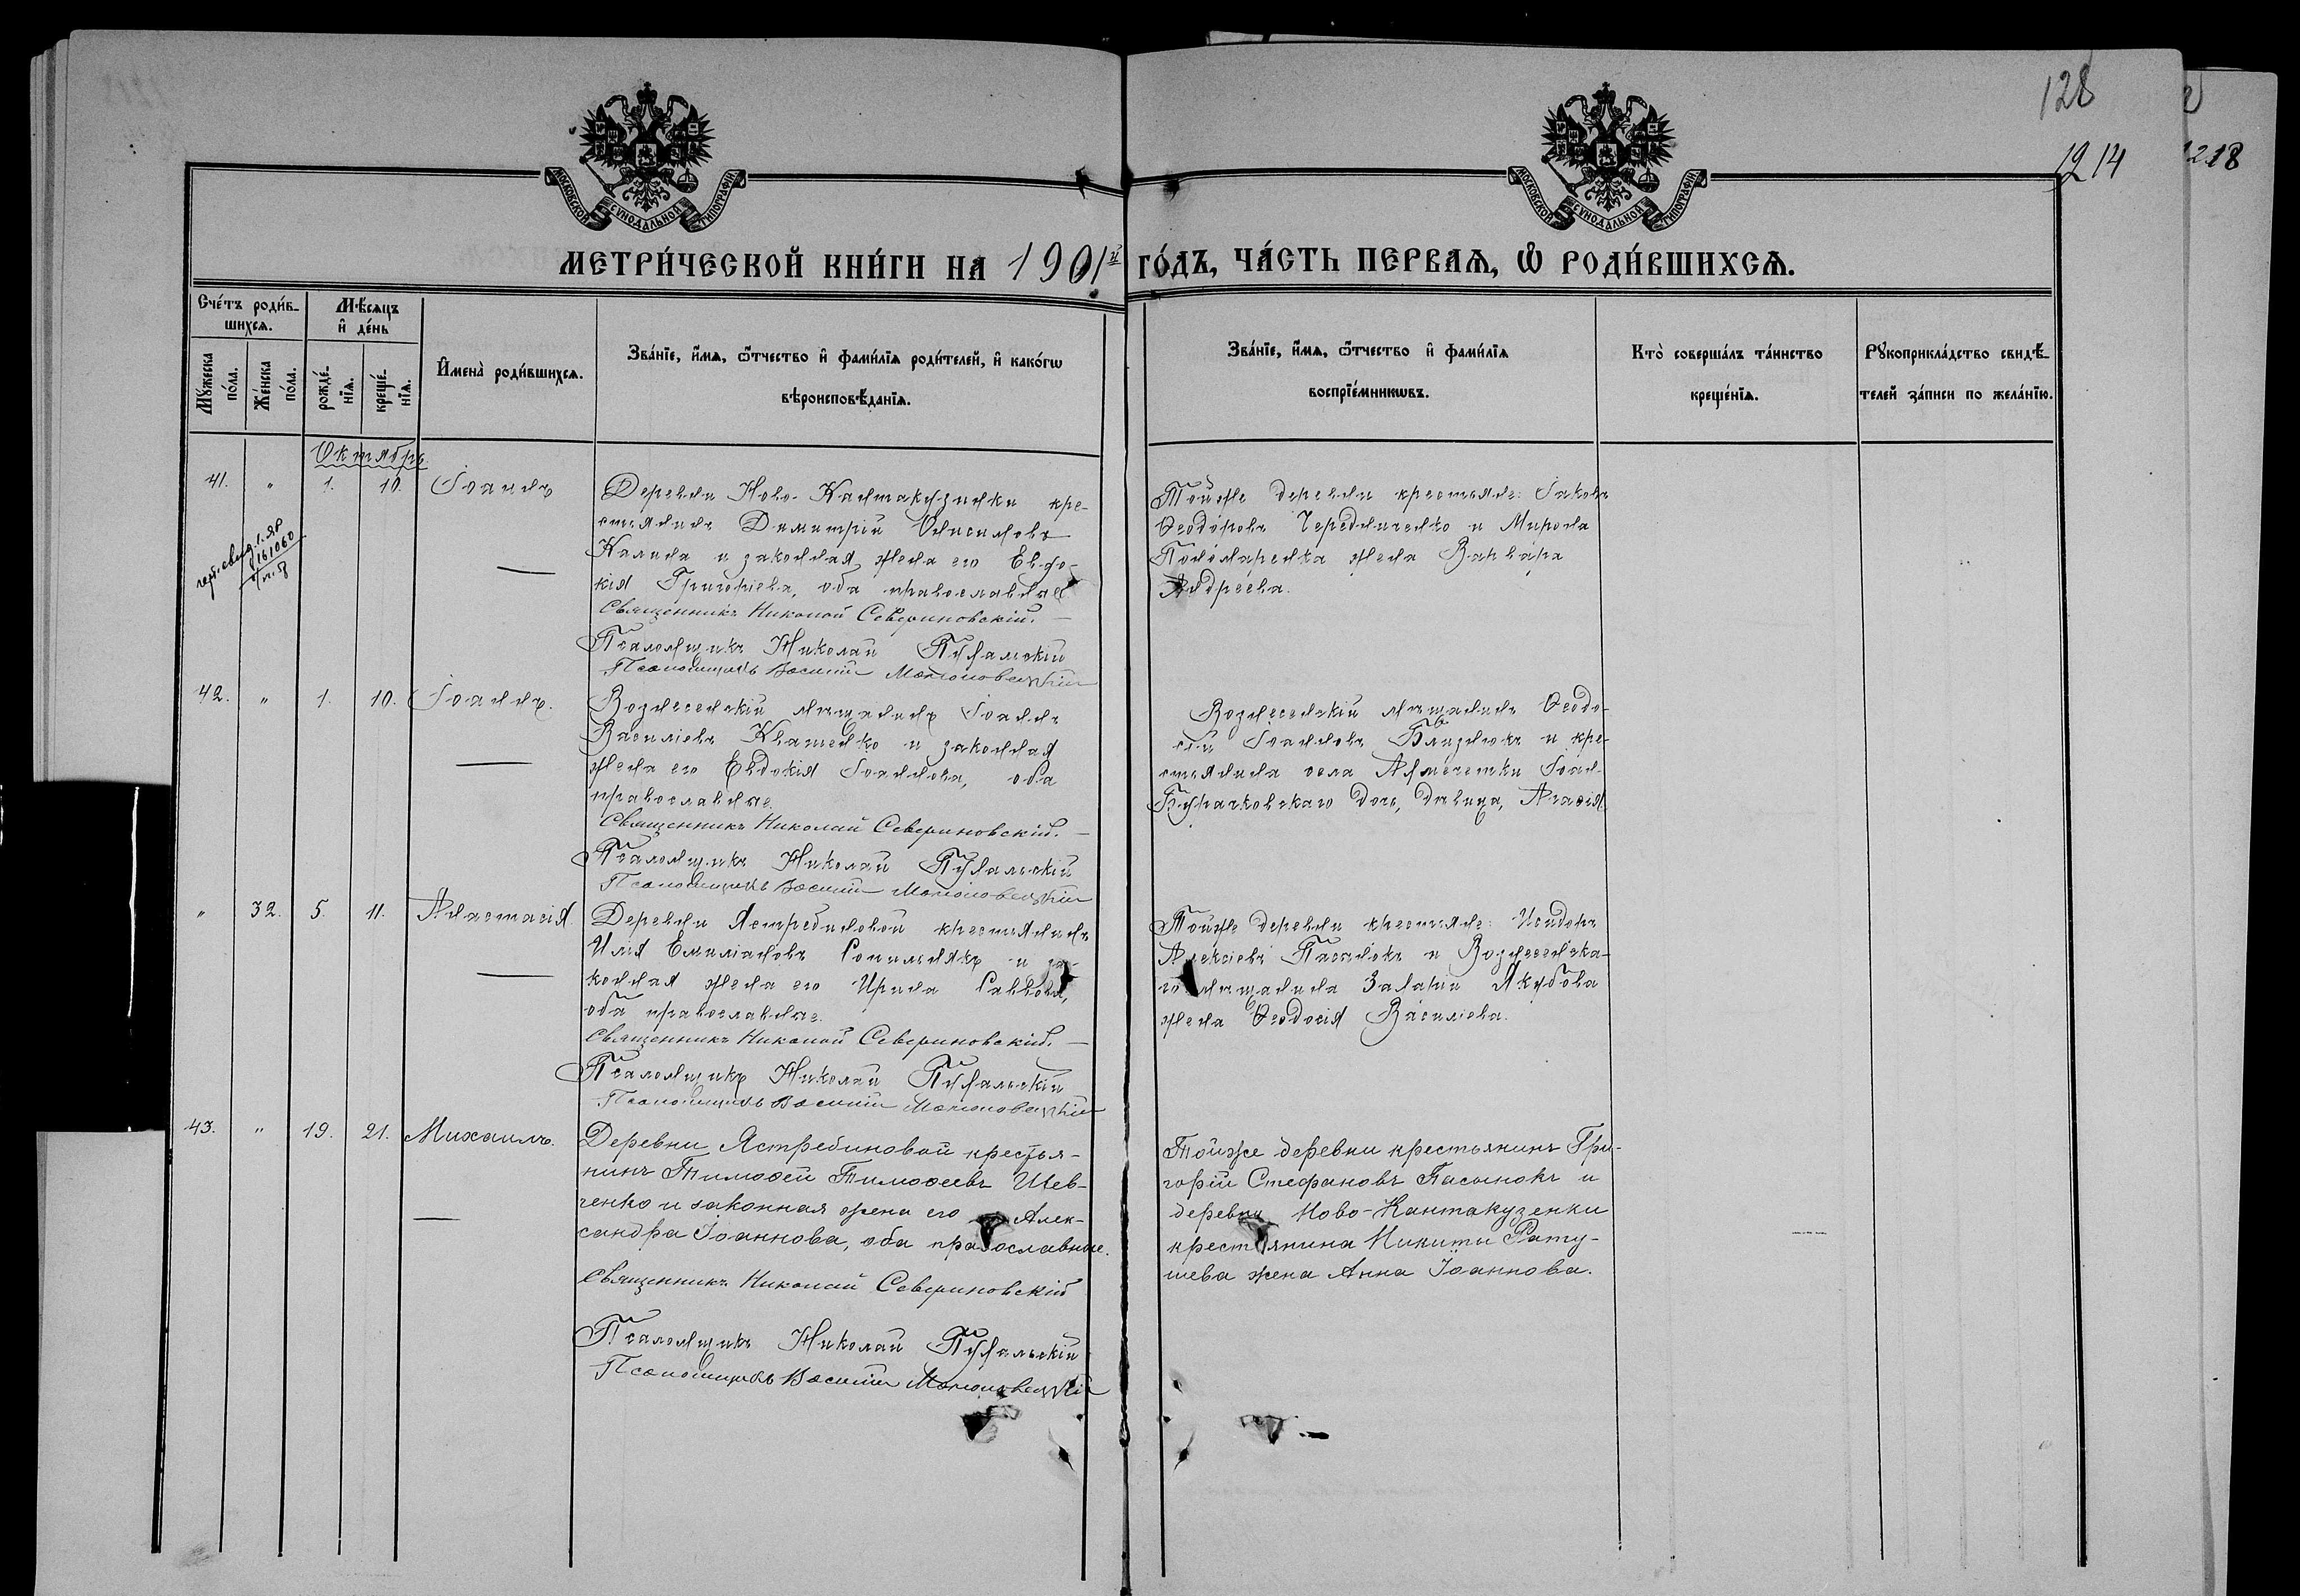 128
1214
1218
МОСКОВСКОЙ СУНОДАЛЬНОЙ ТИПОГРАФІИ
МОСКОВСКОЙ СУНОДАЛЬНОЙ ТИПОГРАФІИ
МЕТРИ́ЧЕСКОЙ КНИ́ГИ НА 1901й ГО́ДЪ, ЧА́СТЬ ПЕРВАѦ, Ѡ РОДИ́ВШИХСѦ.
Сче́тъ роди́в-
шихсѧ.
Мѣ́сѧцъ
и де́нь
Му́жеска
по́ла.
Же́нска
по́ла.
рожде́-
нїѧ.
креще́-
нїѧ.
Имена̀ роди́вшихсѧ.
Зва́нїе, и́мѧ, ѻ́тчество и фами́лїѧ роди́телей, и како́гѡ
вѣроисповѣ́данїѧ.
Зва́нїе, и́мѧ, ѻ́тчество и фами́лїѧ
воспрїе́мникѡвъ.
Кто̀ соверша́лъ та́инство
креще́нїѧ.
Рꙋкоприкла́дство свидѣ́-
телей за́писи по жела́нїю.
Октябрь
41. " 1. 10. Іоаннъ
Деревни Ново-Кантакузинки кре-
стьянинъ Димитрій Онисимовъ
Калина и законная жена его Евдо-
кія Григоріева, оба православные
Священникъ Николай Севериновскій.
Псаломщикъ Николай
Псаломщикъ Василій
Тойже деревни крестьяне: Іаковъ
Ѳеодоровъ Чередниченко и Мирона
Пономаренка жена Варвара
Андреева.
161060
42. " 1. 10. Іоаннъ.
Вознесенскій мѣщанинъ Іоаннъ
Василіевъ Квашенко и законная
жена его Евдокія Іоаннова, оба
православные.
Священникъ Николай Севериновскій.
Псаломщикъ Николай
Псаломщикъ Василій
Вознесенскій мѣщанинъ Ѳеодо-
сій Іоанновъ Близнюкъ и кре-
стьянина села Арчепитки Іоан.
Бурачковскаго дочь, дѣвица, Агафія
" 32. 5. 11. Анастасія
Деревни Ястребиновой крестьянинъ
Илія Емиліановъ и за-
конная жена его Ирина Саввова,
оба православные.
Священникъ Николай Севериновскій.
Псаломщикъ Николай
Псаломщикъ Василій
Тойже деревни крестьяне: Исидоръ
Алексіевъ Пасынокъ и Вознесенска-
го мѣщанина Якубова
жена Ѳеодосія Василіева.
43. " 19. 21. Михаилъ.
Деревни Ястребиновой крестья-
нинъ Тимоѳей Тимоѳеевъ Шев-
ченко и законная жена его Алек-
сандра Іоаннова, оба православные.
Священникъ Николай Севериновскій
Псаломщикъ Николай
Псаломщикъ Василій
Тойже деревни крестьянинъ Гри-
горій Стефановъ Пасынокъ и
деревни Ново-Кантакузенки
крестьянина Никиты Рату-
шева жена Анна Іоаннова.